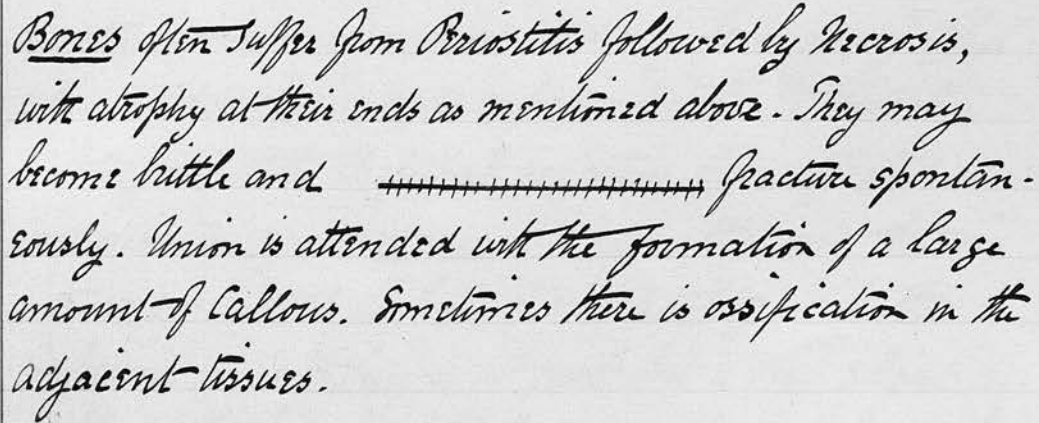 Bones often suffer from Periostitis followed by Necrosis,
with atrophy at their ends as mentioned above. They may
become brittle and fracture spontan-
eously. Union is attended with the formation of a large
amount of Callous. Sometimes there is ossification in the
adjacent tissues.